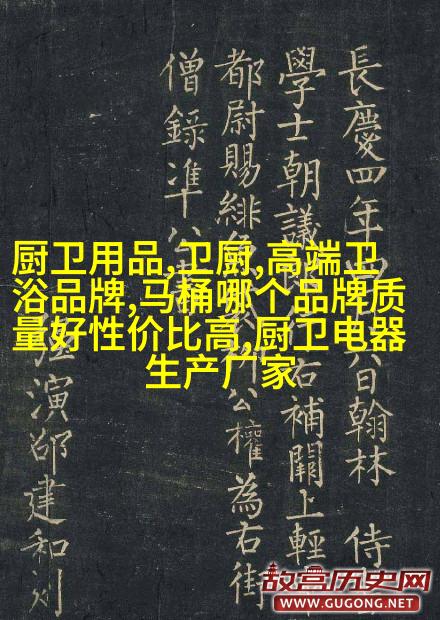 厨卫用品,卫厨,高端卫
浴品牌,马桶哪个品牌质
量好性价比高,厨卫电器
生产厂家
長慶四年日翰林 侍
學士朝議右補闕上輕
都尉賜緋公權為右街
僧錄准公
演邵建和刻
故宫历史网
WWW.GUGONG.NET